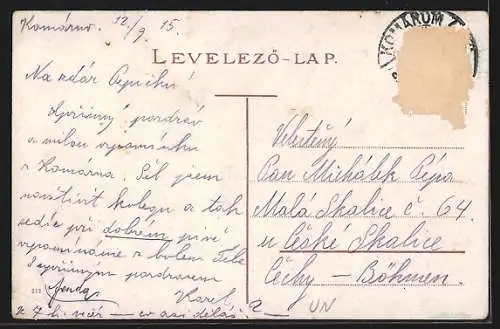 Komárno. 12/9 15.
KOMÁROM
LEVELEZŐ-LAP.
Na zdar Pepíku!
Upřímný pozdrav
a milou vzpomínku
z Komárna. Šel jsem
navštívit kolegu a tak
sedíc při dobrém pivě
vzpomínáme s bolem Tebe
S upřímným pozdravem
Karel
v 7 h. več –
Velectěný
Pan Michálek Pepa
Malá Skalice č. 64.
u České Skalice
Čechy – Böhmen.